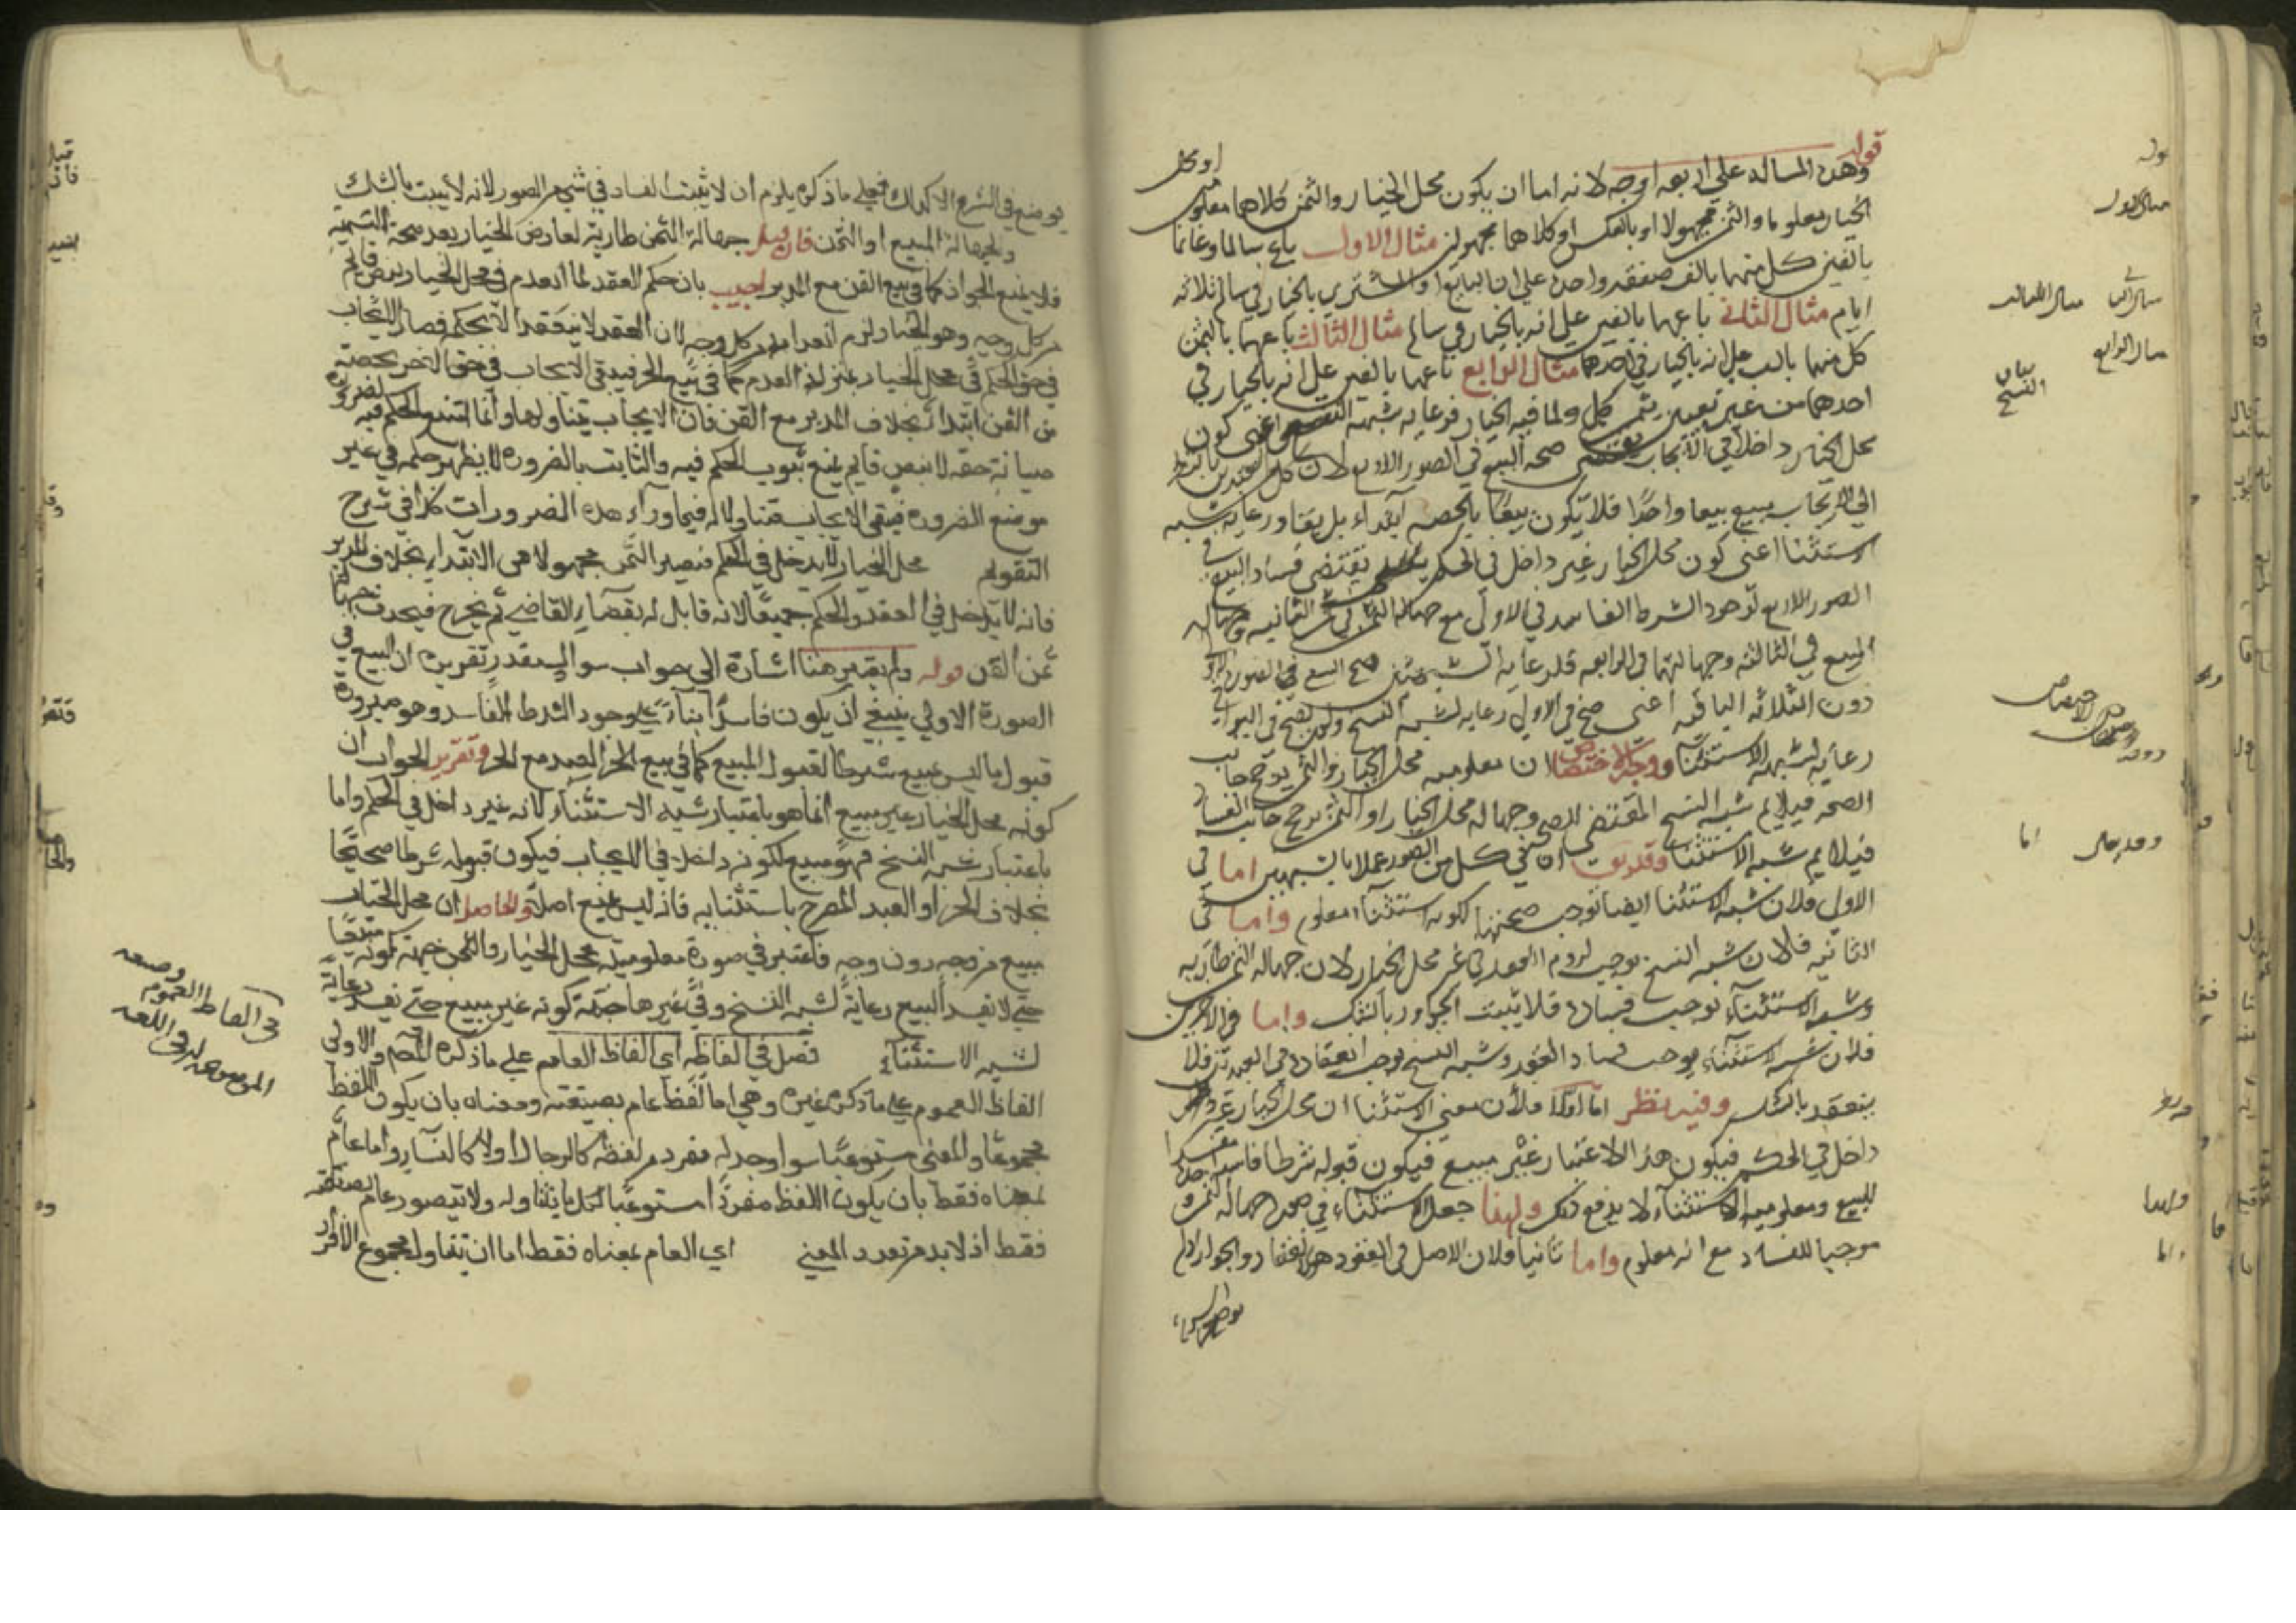 قوله وهذه المسالة علي اربعه اوجه لانه اما ان يكون محل الخيار والثمن كلاهما معلومين او محل
الخيار معلوما والثمن مجهولا او بالعكس او كلاهما مجهولين مثال الاول باع سالما وغانما
بالفين كل منهما بالف صفقه واحدة علي ان البايع او المشتري بالخيار في سالم ثلاثه
ايام مثال الثاني باعهما بالفين علي انه بالخيار في سالم مثال الثالث باعهما بالثمن
كل منهما بالف علي انه بالخيار في احدهما مثال الرابع باعهما بالفين علي انه بالخيار في
احدهما من غير تعيين ثمن كل ولما فيه الخيار فرعايه شبهة النسخ اعني كون
محل الخيار داخلا في الايجاب يقتضي صحه البيع في الصور الاربع لان كل العبدين بالنظر
الي الايجاب مبيع بيعا واحدا فلا يكون بيعا بالحصه ابتداء بل بقاء ورعايه شبه
الاستثنا اعني كون محل الخيار غير داخل في الحكم يقتضي فساد البيع في
الصور الاربع لوجود الشرط الفاسد في الاولي مع جهاله الثمن في الثانيه وجهاله
المبيع في الثالثه وجهالتهما في الرابعه فلرعايه الشبهين صح البيع في الصورة الاولي
دون الثلاثه الباقيه اعني صح في الاول رعايه لشبه النسخ ولم يصح في البواقي
رعايه لشبهه الاستثنا ووجه الاختصاص ان معلوميه محل الخيار والثمن يرجح جانب
الصحه فيلايم شبه النسخ المقتضي للصحه وجهاله محل الخيار او الثمن ترجح جانب الفساد
فيلايم شبه الاستثنا وقد يقال ان في كل من الصور عملا بالشبهين اما في
الاول فلان شبه الاستثنا ايضا توجب صحتها لكونه استثناء معلوم واما في
الثانيه فلان شبه النسخ يوجب لزوم العقد في غير محل الخيار لان جهاله الثمن طاريه
وشبه الاستثناء توجب فساده فلا يثبت الجواز بالشك واما في الاخرين
فلان شبه الاستثناء يوجب فساد العقد وشبه النسخ يوجب انعقاده في العبدين فلا
ينعقد بالشك وفيه نظر اما اولا فلان معني الاستثنا ان محل الخيار غير
داخل في الحكم فيكون هذا الاعتبار غير مبيع فيكون قبوله شرطا فاسدا مفسدا
للبيع ومعلوميه الاستثناء لا يدفع ذلك ولهذا جعل الاستثناء في صورة جهاله الثمن
موجبا للفساد مع انه معلوم واما ثانيا فلان الاصل في العقود هو الانعقاد والجواز اذ لم
توضع في الشرع الا لذلك فعلي ما ذكره يلزم ان لا يثبت الفساد في شي من الصور لانه لا يثبت بالشك
ولجهالة المبيع او الثمن فان قيل جهالة الثمن طارية لعارض الخيار بعد صحة التسمية
فلا يمنع الجواز كما في بيع القن مع المدبر اجيب بان حكم العقد لما انعدم في محل الخيار بنص قايم
من كل وجه وهو الخيار لزم انعدامه من كل وجه لان العقد لا ينعقد الا لحكمه فصار الايجاب
في حق الحكم في محل الخيار بمنزلة العدم كما في بيع الحر فيبقي الايجاب في حق الاخر بحصته
من الثمن ابتداء بخلاف المدبر مع القن فان الايجاب يتناولهما وانما امتنع الحكم فيه لضرورة
صيانة حقه لا بنص قايم يمنع ثبوت الحكم فيه والثابت بالضرورة لا يظهر حكمه في غير
موضع الضرورة فيبقي الايجاب متناولا له فيما وراء هذه الضرورات كذا في شرح
التقويم محل الخيار لا يدخل في الحكم فيصير الثمن مجهولا من الابتداء بخلاف المدبر
فانه لا يدخل في العقد والحكم جميعا لانه قابل له بقضاء القاضي ثم يخرج فيحدث جهالة
ثمن القن قوله ولم يعتبر هنا اشارة الي جواب سوال مقدر تقريره ان البيع في
الصورة الاولي ينبغي ان يكون فاسدا بناء علي وجود الشرط الفاسد وهو صيرورة
قبول ما ليس بمبيع شرطا لقبول المبيع كما في بيع الحر والعبد مع الحر وتقرير الجواب ان
كونه محل الخيار غير مبيع انما هو باعتبار شبه الاستثناء لانه غير داخل في الحكم واما
باعتبار شبه النسخ فهو مبيع لكونه داخلا في الايجاب فيكون قبوله شرطا صحيحا
بخلاف الحر او العبد المصرح باستثنايه فانه ليس بمبيع اصلا والحاصل ان محل الخيار
مبيع من وجه دون وجه فاعتبر في صورة معلومية محل الخيار والثمن جهة كونه مبيعا
حتي لا يفسد البيع رعاية لشبه النسخ وفي غيرها جهة كونه غير مبيع حتي يفسد رعاية
لشبه الاستثناء فصل في الفاظه اي الفاظ العام علي ما ذكره المص والاولي
الفاظ العموم علي ما ذكره غيره وهي اما لفظ عام بصيغته ومعناه بان يكون اللفظ
مجموعا والمعني مستوعبا سوا وجد له مفرد من لفظه كالرجال اولا كالنساء واما عام
بمعناه فقط بان يكون اللفظ مفردا مستوعبا لكل ما يتناوله ولا يتصور عام بصيغته
فقط اذ لا بد من تعدد المعني اي العام بمعناه فقط اما ان يتناول مجموع الافراد